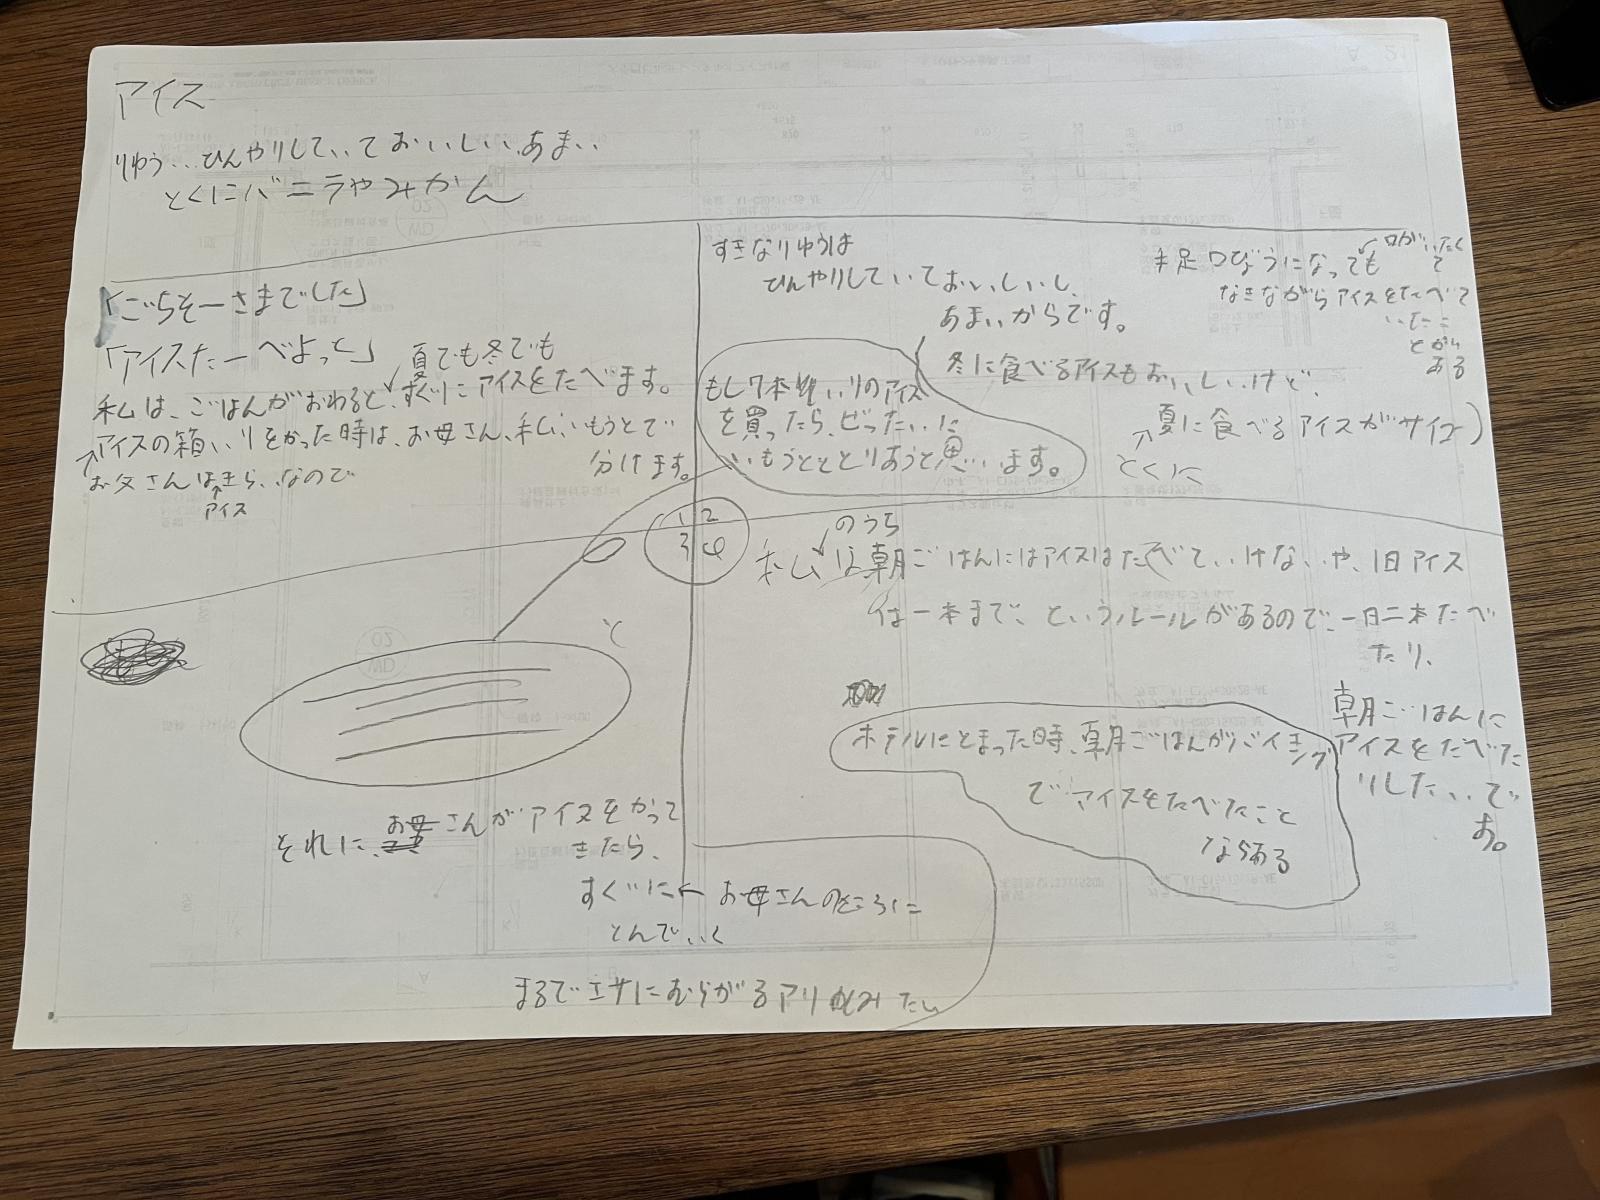 アイス
りゆう…ひんやりしていておいしい、あまい
とくにバニラやみかん
「ごちそーさまでした」
「アイスたーべよっと」
夏でも冬でも
私は、ごはんがおわると、すぐにアイスをたべます。
アイスの箱いりをかった時は、お母さん、私、いもうとで
分けます。
お父さんはきらいなので
アイス
すきなりゆうは
ひんやりしていておいしいし、
あまいからです。
冬に食べるアイスもおいしいけど、
夏に食べるアイスがサイコー
とくに
もし7本 いりのアイス
を買ったら、ぜったいに
いもうととりあうと思います。
手足口びょうになっても
口がいたく
て
なきながらアイスをたべて
いたこ
とがい
ある
1 2
3 4
のうち
私は朝ごはんにはアイスはたべていけないや、1日アイス
は一本まで、というルールがあるので、一日二本たべ
たり、
朝ごはんに
アイスをたべた
りしたいで
す。
ホテルにとまった時、朝ごはんがバイキング
でアイスをたべたこと
ならある
それに、お母さんがアイスをかって
きたら、
すぐに お母さんのところに
とんでいく
まるでエサにむらがるアリみたい